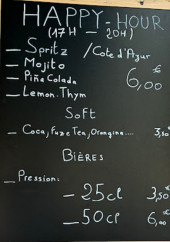 HAPPY-HOUR
(17H - 20H)
_ Spritz /Cote d'Azur
_ Mojito
_ Piña Colada 6,00€
_ Lemon.Thym
Soft
_ Coca, Fuze Tea, Orangina.... 3,50
BIÈRES
_ Pression:
- 25cl 3,50€
- 50cl 6,00€